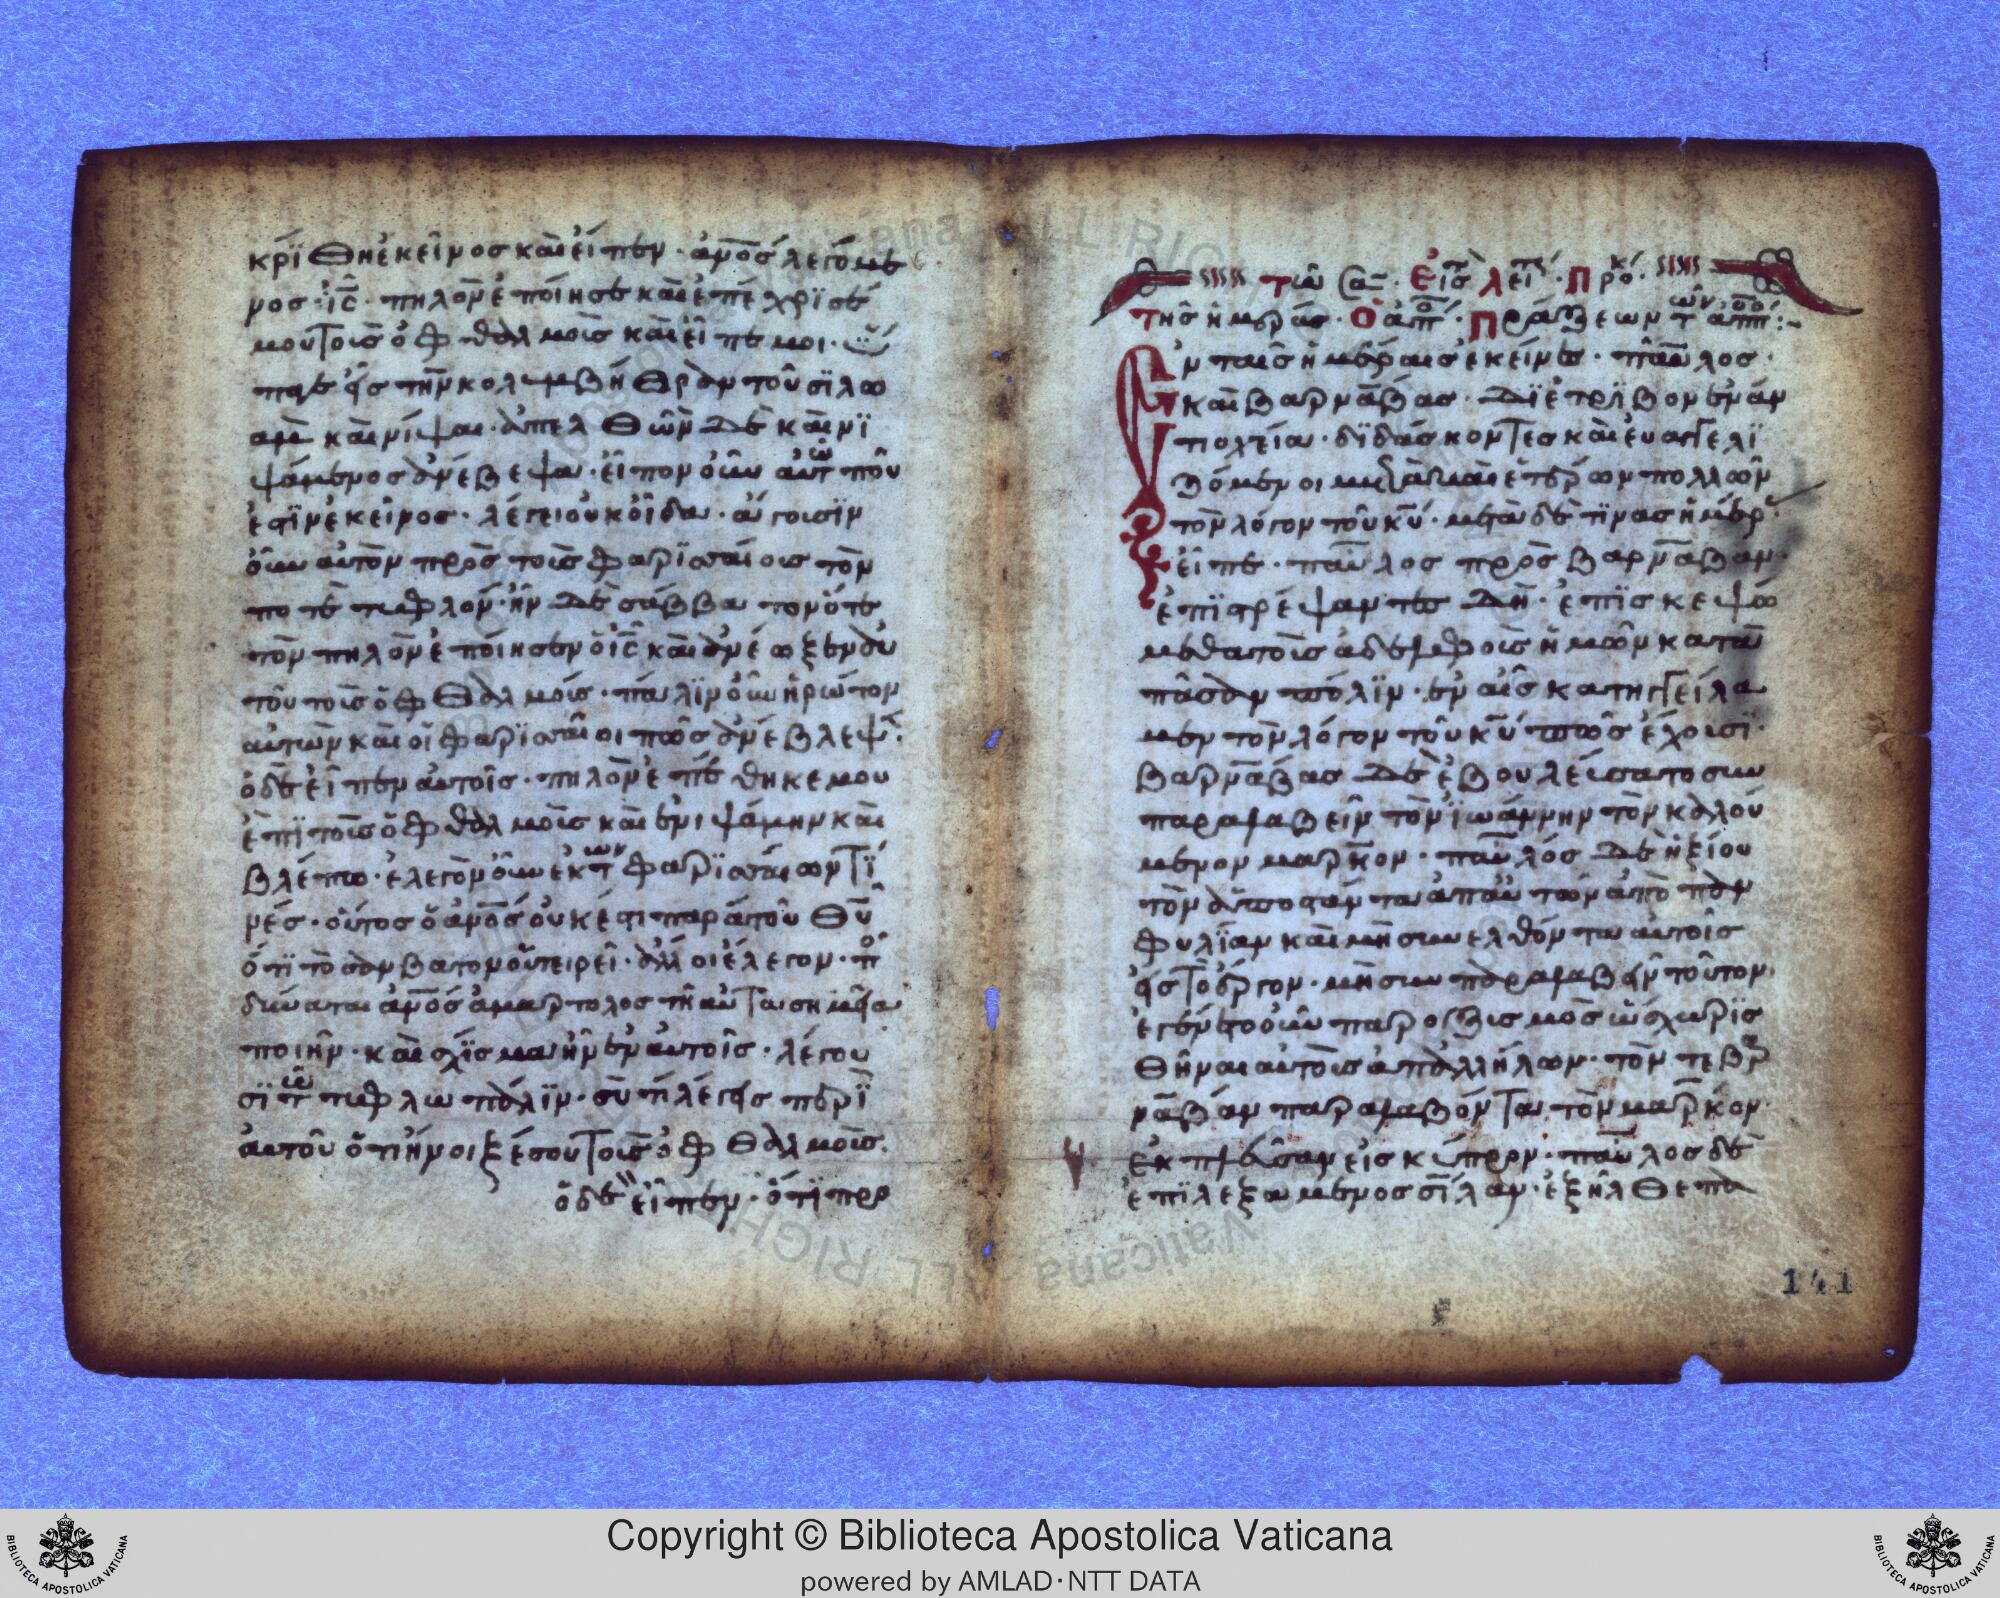 κρίϊθη ἐκεῖνος καὶ εἶπεν· ἀνο̅ς λεγόμε
νος· ι̅ς̅· πηλὸν ἐποίησε καὶ ἐπέχρϊσέ
μου τοῖς ὀφθαλμοῖς καὶ εἶπε μοι· ὕ
παγε εἰς τὴν κολυμβήθραν τοῦ σϊλω
ἀμ καὶ νίψαι· ἀπελθὼν δὲ καὶ νϊ
ψάμενος ἀνέβλεψα· εἶπον οὖν αὐτῶ ποῦ
ἐστϊν ἐκεῖνος· λέγει οὐκ οἶδα· ἄγουσϊν
οὖν αὐτὸν πρὸς τοὺς φαρϊσαίους τὸν
ποτὲ τυφλόν· ἦν δὲ σάββατον ὅτε
τὸν πηλὸν ἐποίησεν ὁ ι̅ς̅ καὶ ἀνέωξεν αὐ
τοῦ τοὺς ὀφθαλμούς· πάλϊν οὖν ἠρώτον
αὐτὼν καὶ οἱ φαρϊσαῖοι πῶς ἀνέβλεψ·
ὁ δὲ εἶπεν αὐτοῖς· πηλὸν ἐπέθηκε μου
ἐπϊ τοὺς ὀφθαλμοὺς καὶ ἐνιψάμην καὶ
βλέπω· ἔλεγον οὖν ἐκ τῶν φαρϊσαίων τϊ
νές· οὗτος ὁ ἀνο̅ς οὐκ ἔστι παρὰ τοῦ θυ̅
ὅτϊ τὸ σάββατον οὐ τειρεῖ· ἄλλοι ἔλεγον· π
δύναται ἀνο̅ς ἁμαρτολος τηαῦτα σημεῖα
ποιῆν· καὶ σχϊσμα ἦν ἐν αὐτοῖς· λέγου
σϊ τῶ τυφλω πάλϊν· σὺ τί λέγεις περὶ
αὐτοῦ ὅτι ἤνοιξέ σου τοὺς ὀφθαλμούς·
ὁ δὲ εἶπεν· ὅτϊ προ
τῆς ἡμέρας· Ὁ ἀπο· Πράξεων τῶν ἀπο:
Ἐν ταῖς ἡμέραις ἐκείναις· παῦλος·
καὶ βαρνάβας· δϊέτρϊβον ἐν ἀν
τιοχεία· δϊδάσκοντες καὶ εὐαγγελϊ
ζόμενοι μετὰ καὶ ἑτέρων πολλῶν
τὸν λόγον τοῦ κυ̅· μετὰ δὲ τϊνας ἡμέρ
εἶπε· παῦλος πρὸς βαρνάβαν·
ἐπϊστρέψαντες δὴ· ἐπϊσκεψώ
μεθα τοὺς ἀδελφοὺς ἡμῶν κατὰ
πᾶσαν πόλϊν· ἐν αἷς κατηγγείλα
μεν τὸν λόγον τοῦ κυ̅· πῶς ἔχουσϊ·
βαρνάβας δὲ ἐβουλεύσατο συν
παραλαβεῖν τὸν ἰωάννην τὸν καλού
μενον μάρκον· παῦλος δὲ ἠξίου
τὸν ἀποστάντα ἀπ' αὐτῶν ἀπὸ παμ
φυλϊαν καὶ μὴ συνελθόντα αὐτοῖς
εἰς τὸ ἔργον· μὴ συν παραλαβεῖν τοῦτον·
ἐγένετο οὖν παροξισμὸς ὥς χωρϊσ
θῆναι αὐτοὺς ἀπ' ἀλλήλων· τὸν τε βαρ
νάβαν παραλαβόντα τὸν μάρκον·
ἐκπλεῦσαι εἰς κύπρον· παῦλος δὲ
ἐπϊλεξάμενος σίλαν· ἐξῆλθε πα
141
Copyright © Biblioteca Apostolica Vaticana
powered by AMLAD·NTT DATA